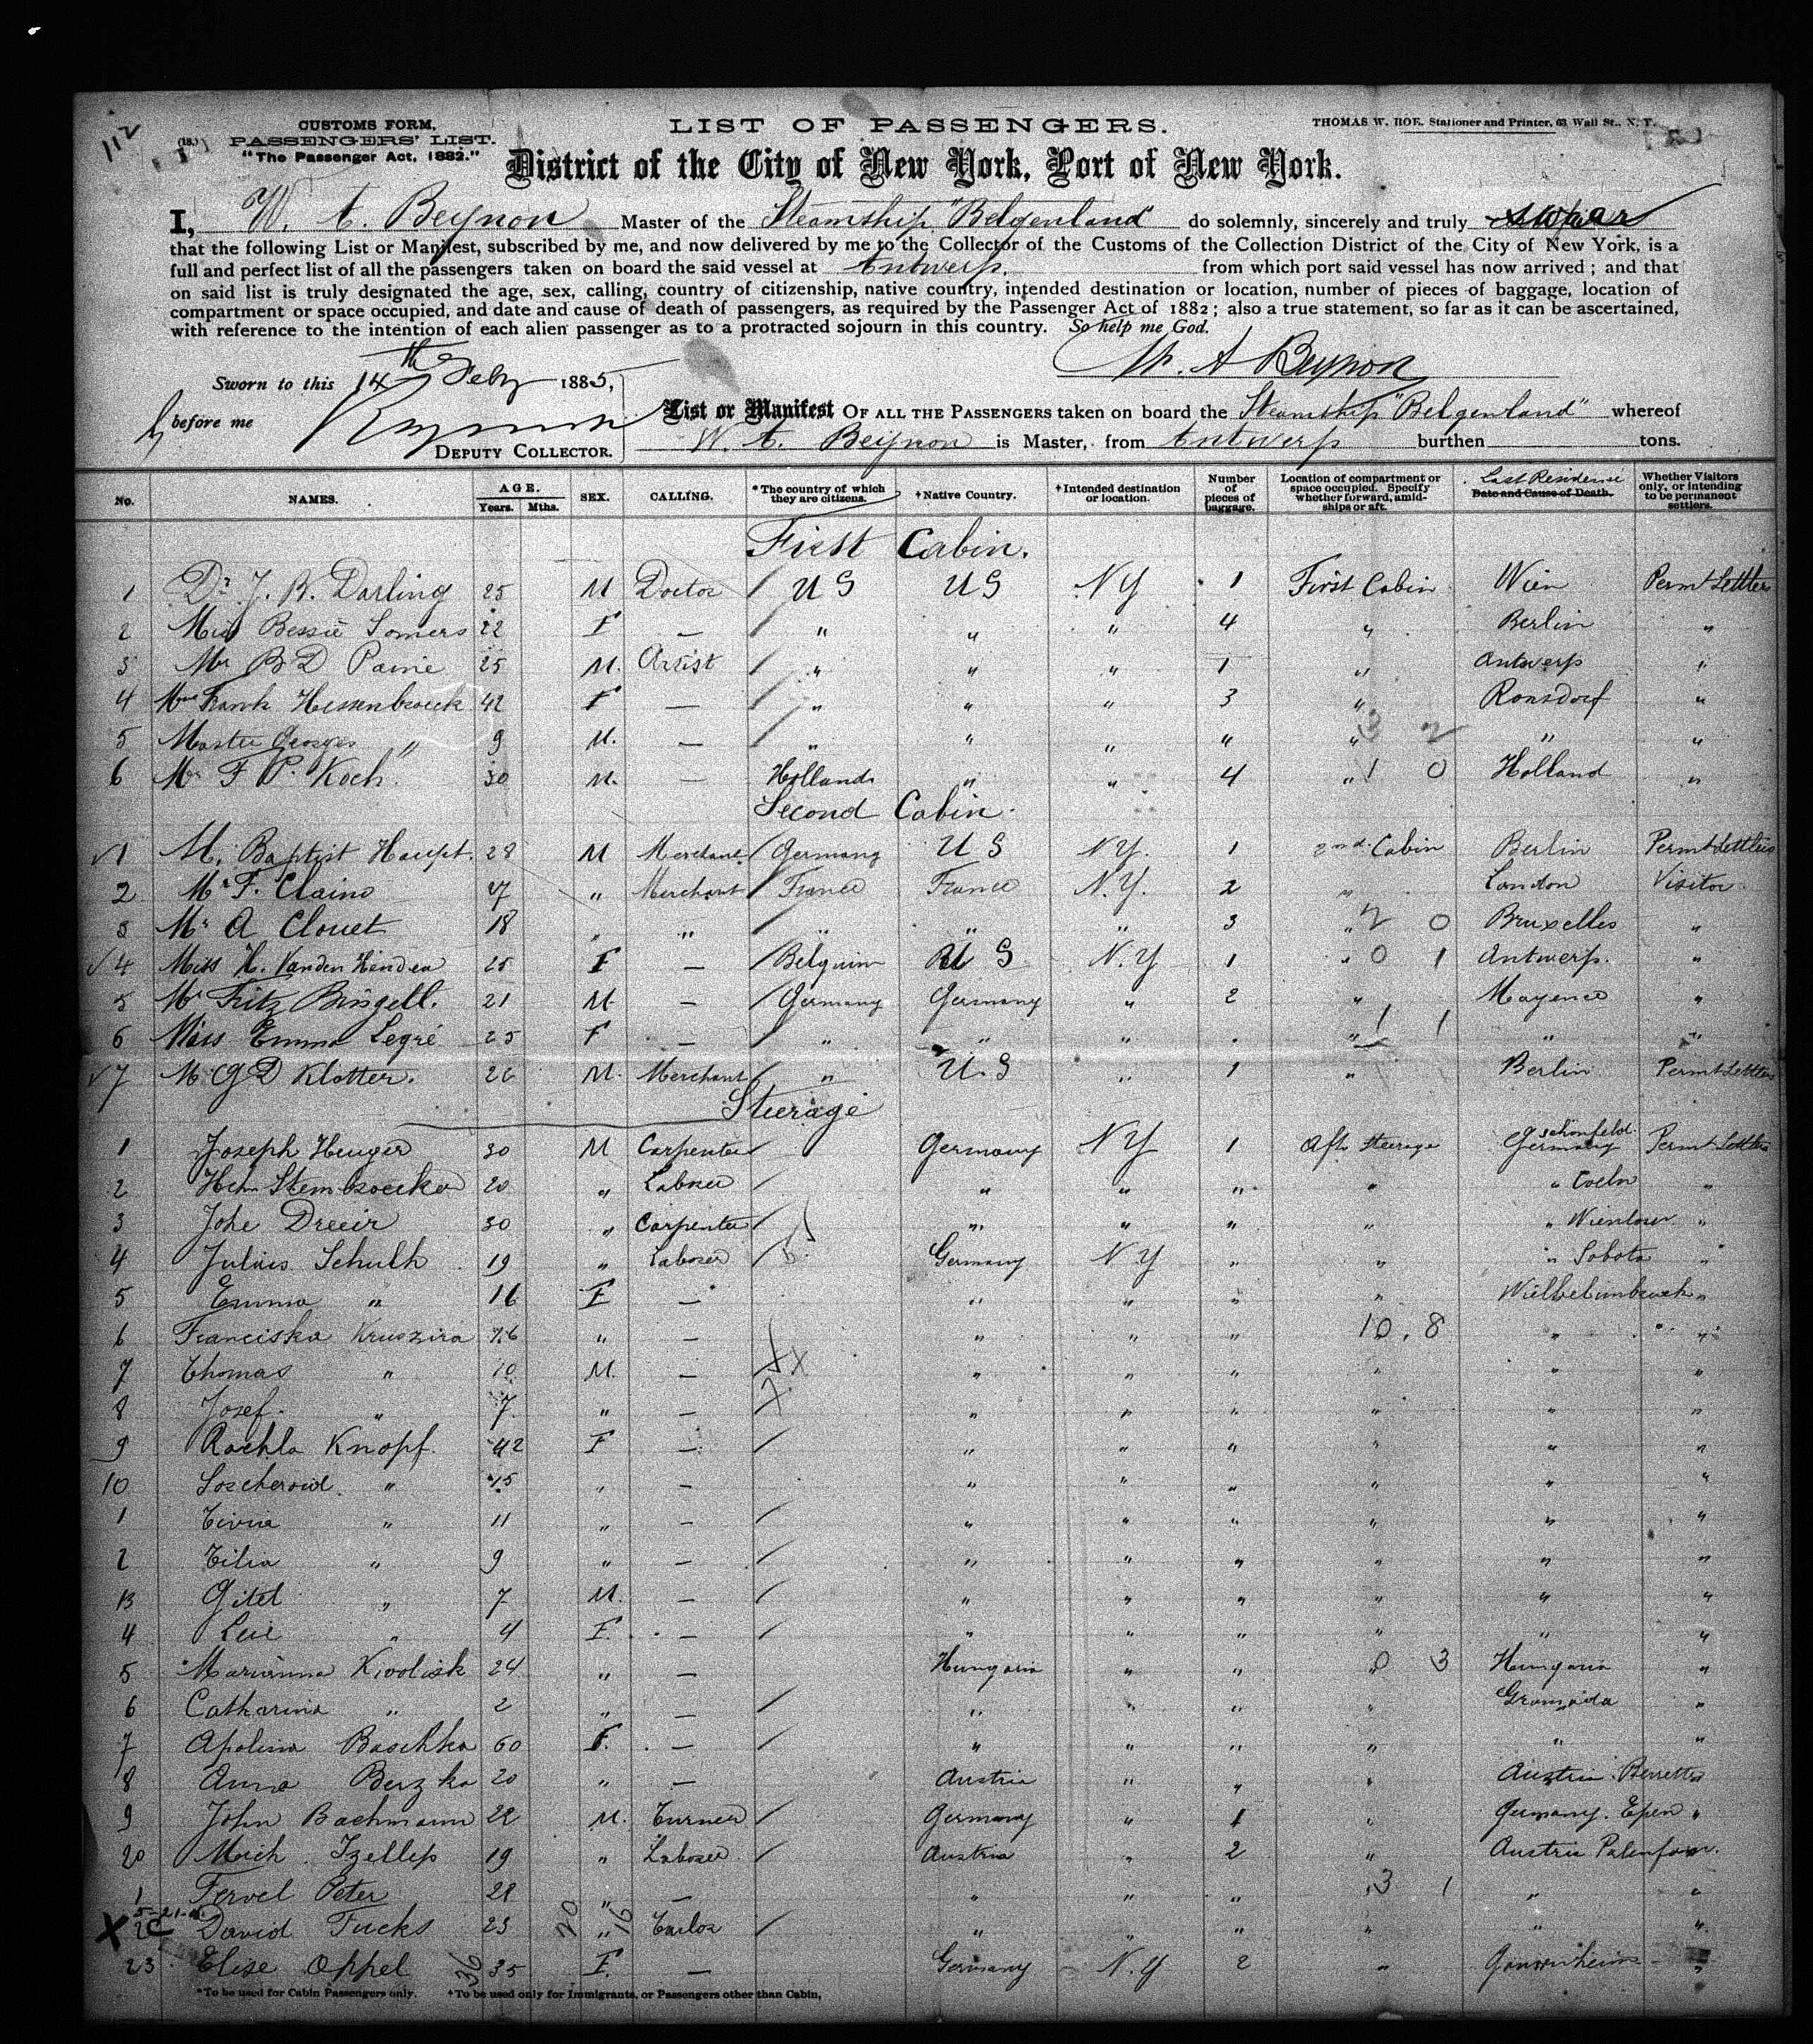 112
CUSTOMS FORM,
(18.) PASSENGERS' LIST.
"The Passenger Act, 1882."
LIST OF PASSENGERS.
THOMAS W. ROE. Stationer and Printer, 63 Wall St., N. Y.
District of the City of New York, Port of New York.
I, W. A. Beynon Master of the Steamship "Belgenland" do solemnly, sincerely and truly swear
that the following List or Manifest, subscribed by me, and now delivered by me to the Collector of the Customs of the Collection District of the City of New York, is a
full and perfect list of all the passengers taken on board the said vessel at Antwerp. from which port said vessel has now arrived ; and that
on said list is truly designated the age, sex, calling, country of citizenship, native country, intended destination or location, number of pieces of baggage, location of
compartment or space occupied, and date and cause of death of passengers, as required by the Passenger Act of 1882 ; also a true statement, so far as it can be ascertained,
with reference to the intention of each alien passenger as to a protracted sojourn in this country. So help me God.
W. A Beynon
Sworn to this 14th Feby 1885,
before me
DEPUTY COLLECTOR.
List or Manifest OF ALL THE PASSENGERS taken on board the Steamship "Belgenland" whereof
W. A. Beynon is Master, from Antwerp burthen tons.
No. NAMES. AGE. Years. Mths. SEX. CALLING. *The country of which they are citizens. †Native Country. †Intended destination or location. Number of pieces of baggage. Location of compartment or space occupied. Specify whether forward, amid-ships or aft. Last Residence Date and Cause of Death. Whether Visitors only, or intending to be permanent settlers.
First Cabin.
1 Dr. J. B. Darling 25 M Doctor U S U S N Y 1 First Cabin Wien Permt Settlers
2 Miss Bessie Somers 22 F — " " " 4 " Berlin "
3 Mr B D Paine 25 M. Artist " " " 1 " Antwerp "
4 Mme Frank Hessenbroeck 42 F — " " " 3 " Ronsdorf "
5 Master Georges " 9 M. — " " " " " " "
6 Mr F P. Koch. 30 M. — Holland " " 4 " 1 0 Holland "
Second Cabin.
1 M. Baptist Haupt. 28 M Merchant Germany U S N Y. 1 2nd. Cabin Berlin Permt Settlers
2 Mr F. Claino 47 " Merchant France France N.Y. 2 " London Visitor
3 Mr A Clouet 18 " " " " " 3 " 2 0 Bruxelles "
4 Miss H. Vanden Hendea 25 F — Belgium U S N.Y 1 " 0 1 Antwerp. "
5 Mr Fritz Bingell. 21 M — Germany Germany " 2 " Mayence "
6 Miss Emma Legré 25 F — " " " " " 1 1 " "
7 M G D Klotter. 26 M. Merchant " U.S " 1 " Berlin Permt Settlers
Steerage
1 Joseph Heuger 30 M Carpenter Germany N Y 1 Aft Steerage Schönfeld. Germany Permt Settlers
2 Hch Stembroecker 20 " Laborer " " " " " Coeln "
3 Johe Dreeir 30 " Carpenter " " " " " "
4 Julius Schulh 19 " Laborer Germany N Y " " " Sobota "
5 Emma " 16 F — " " " " "
6 Franciska Kruszira 26 " — " " " 10. 8 " "
7 Thomas " 10 M. — " " " " " "
8 Josef. " 7 " — " " " " " "
9 Rachla Knopf. 42 F — " " " " " "
10 " 15 " — " " " " " "
1 Civia " 11 " — " " " " " "
2 Cilia " 9 " — " " " " " "
13 Gitel " 7 M. — " " " " " "
4 Leie " 4 F. — " " " " " "
5 Marianna Kwolisk 24 " — Hungaria " " " 0 3 Hungaria "
6 Catharina " 2 " — " " " " "
7 Apolina Baschka 60 F. — " " " " " "
8 Anna Berzka 20 " — Austria " " " Austria "
9 John Bachmann 22 M. Turner Germany " 1 " Germany. Epen "
20 Mich Izellep 19 " Laborer Austria " 2 " Austria
1 Fervel Peter 28 " — " " " 3 1 " "
X 2 David Fucks 23 " Tailor " " " " " "
23 Elise Oppel 35 F. — Germany N.Y 2 " Gonsenheim "
20 16
36
*To be used for Cabin Passengers only. †To be used only for Immigrants, or Passengers other than Cabin,